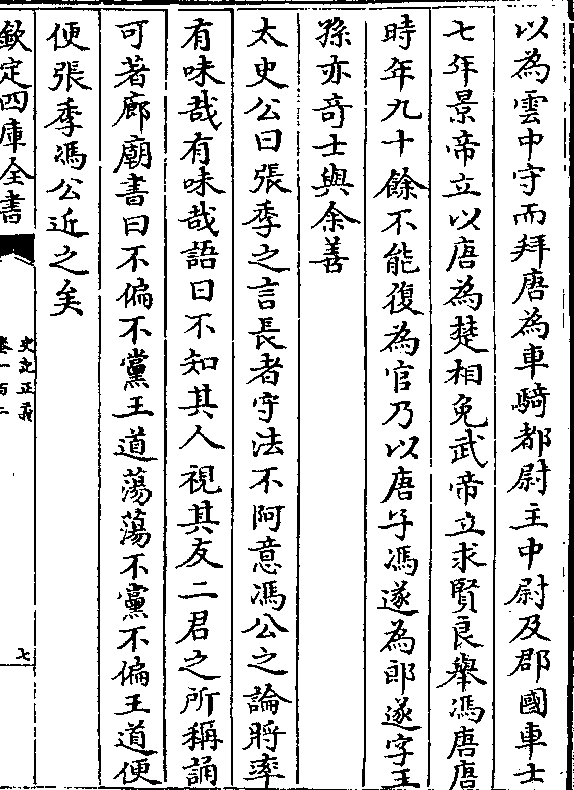 以為雲中守而拜唐為車騎都尉主中尉及郡國車士
七年景帝立以唐為楚相免武帝立求賢良舉馮唐唐
時年九十餘不能復為官乃以唐子馮遂為郎遂字王
孫亦奇士與余善
太史公曰張季之言長者守法不阿意馮公之論將率
有味哉有味哉語曰不知其人視其友二君之所稱誦
可著廊廟書曰不偏不黨王道蕩蕩不黨不偏王道便
便張季馮公近之矣
欽定四庫全書
史記正義
卷一百二
七